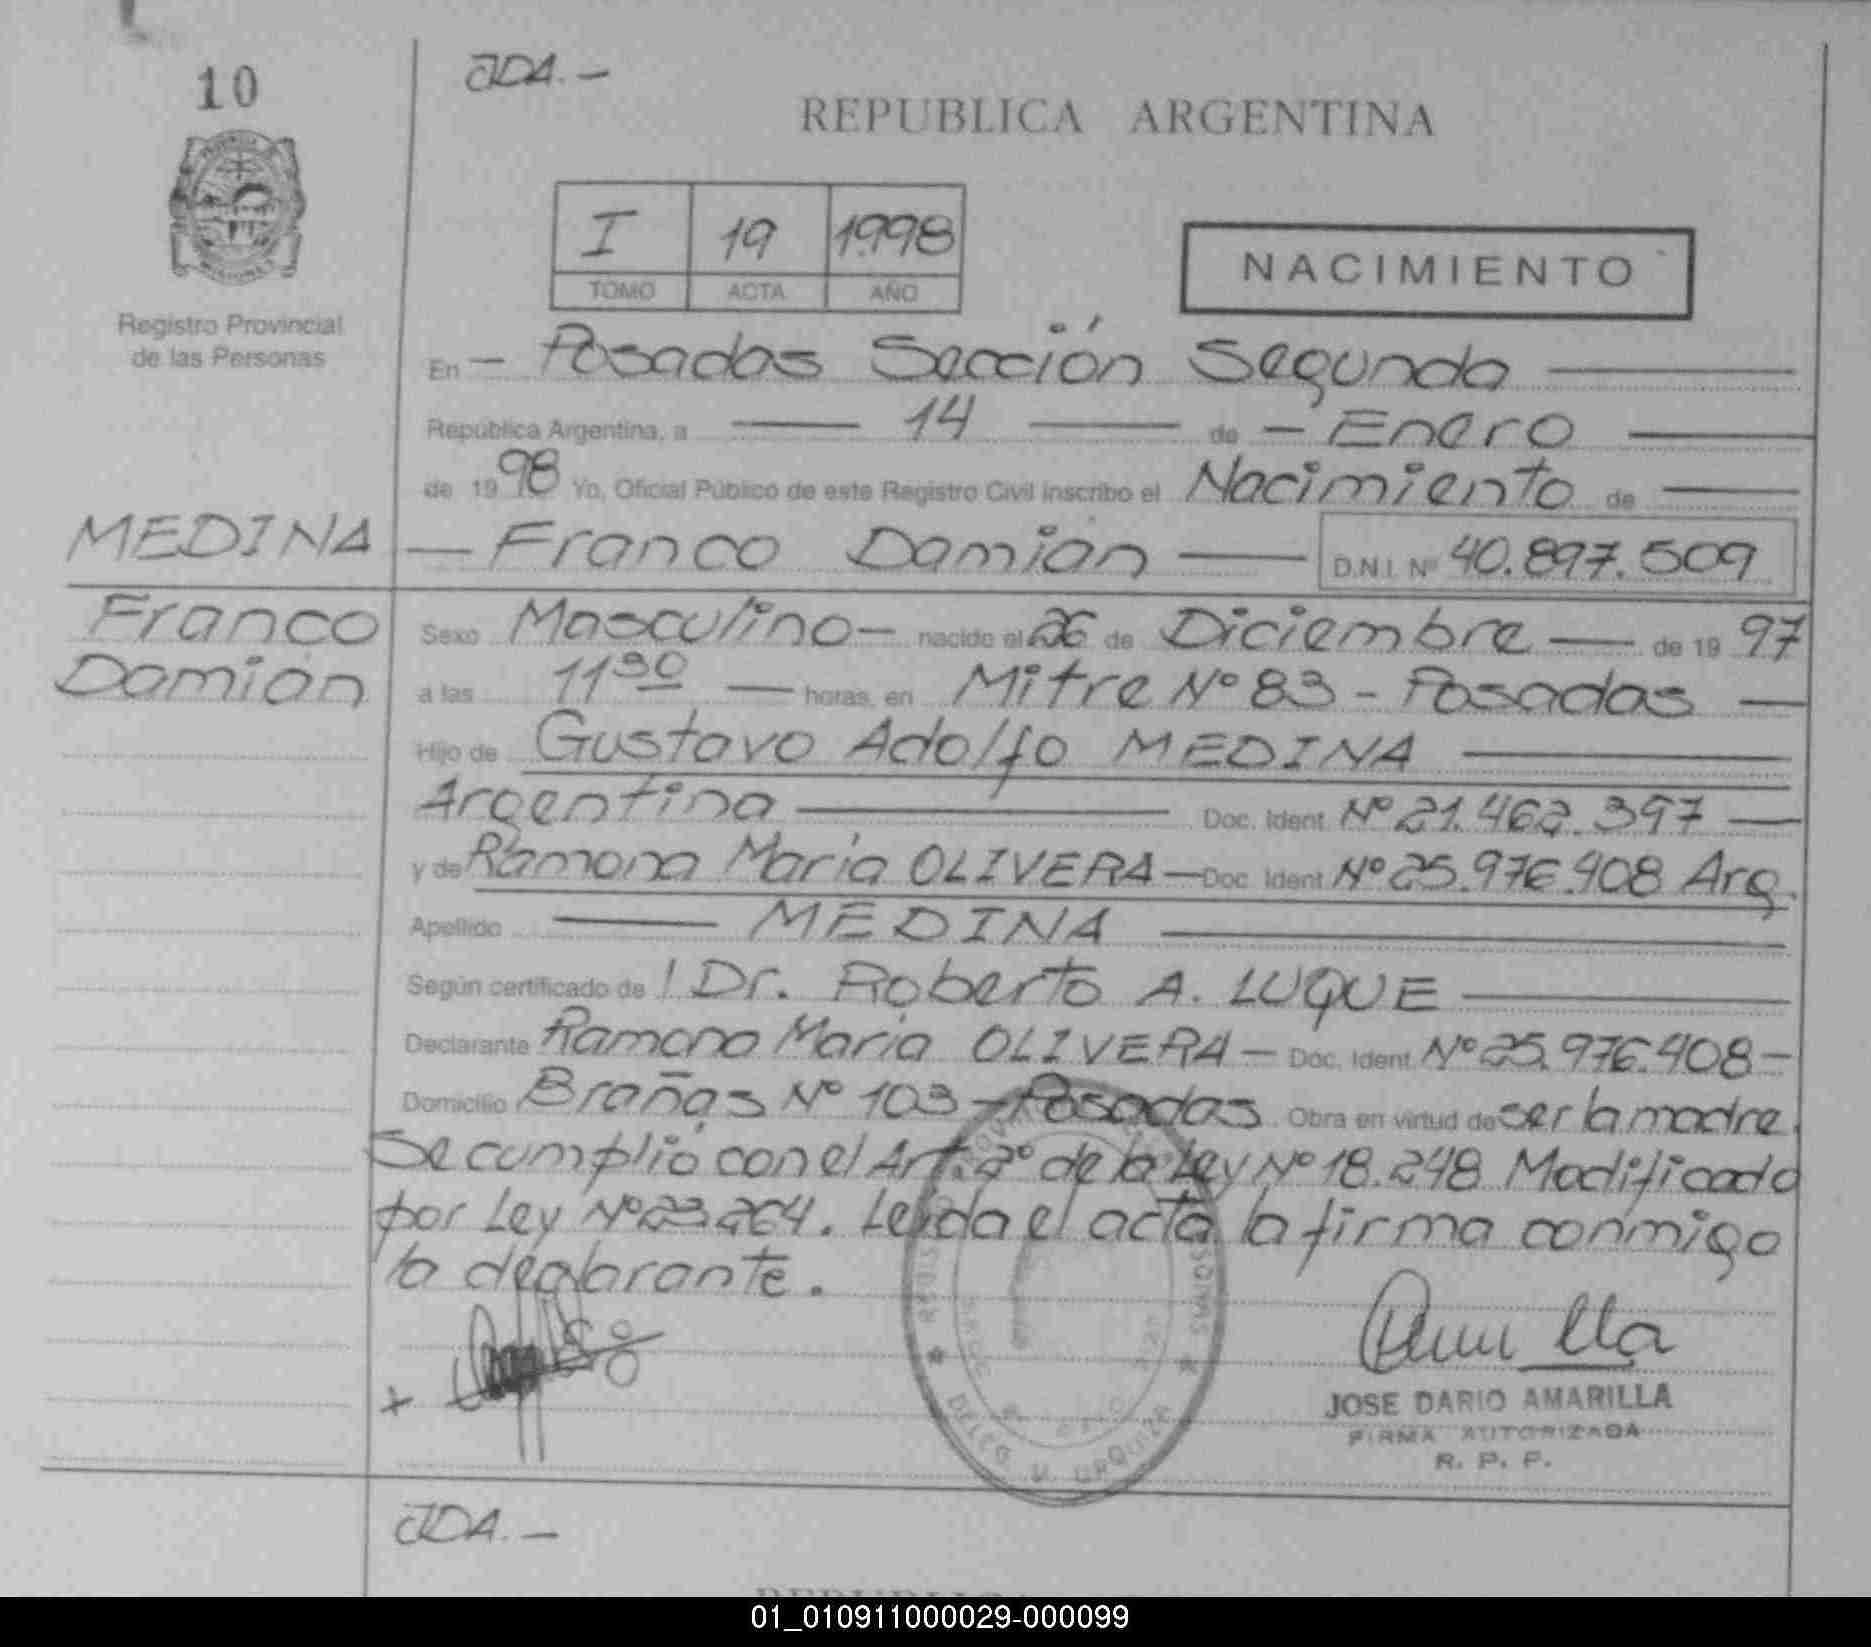 10
JDA.-
REPUBLICA ARGENTINA
I 19 1998
TOMO ACTA AÑO
NACIMIENTO
Registro Provincial
de las Personas
En - Posadas Sección Segunda
República Argentina, a 14 de - Enero
de 1998 Yo, Oficial Público de este Registro Civil inscribo el Nacimiento de
MEDINA
Franco
Damián
Franco Damián D.N.I. Nº 40.897.509
Sexo Masculino - nacido el 26 de Diciembre de 1997
a las 11 30 horas, en Mitre Nº 83 - Posadas
Hijo de Gustavo Adolfo MEDINA
Argentina Doc. Ident. Nº 21.462.397
y de Ramona María OLIVERA - Doc. Ident. Nº 25.976.408 Arg.
Apellido MEDINA
Según certificado de / Dr. Roberto A. LUQUE
Declarante Ramona María OLIVERA - Doc. Ident. Nº 25.976.408 -
Domicilio Brañas Nº 103 - Posadas Obra en virtud de ser la madre.
Se cumplió con el Art. 2º de la Ley Nº 18.248 Modificado
por Ley Nº 23.264. Leída el acta la firma conmigo
la declarante.
JOSE DARIO AMARILLA
FIRMA AUTORIZADA
R. P. P.
DELEG. V. URQUIZA
JDA.-
01_010911000029-000099